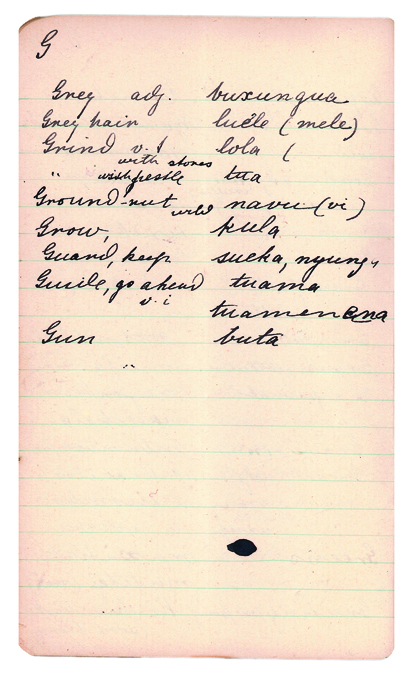 G
Grey adj. buxungua
Grey hair lucle (mele)
Grind v.t lola (
with stones
" with pestle tua
Ground-nut wild navu (vi)
Grow, kula
Guard, keep sucka, nyung
Guide, go ahead tuama
v.i
tuamenena
Gun buta